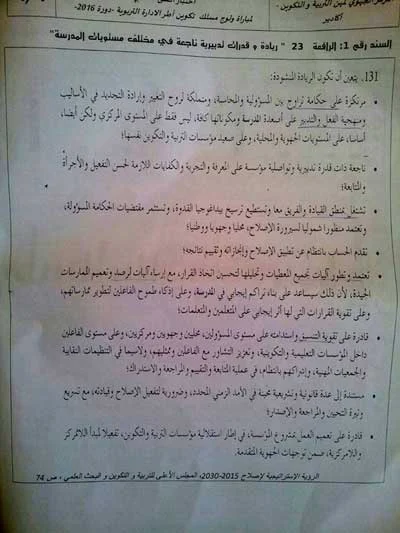 المركز الجهوي لمهن التربية و التكوين -
أكادير
لمباراة ولوج مسلك تكوين أطر الادارة التربوية -دورة 2016-
السند رقم 1: الرافعة 23 " ريادة و قدرات تدبيرية ناجعة في مختلف مستويات المدرسة"
131. يتعين أن تكون الريادة المنشودة:
• مرتكزة على حكامة تزاوج بين المسؤولية والمحاسبة، ومتملكة لروح التغيير وإرادة التجديد في الأساليب
ومنهجية الفعل والتدبير على أصعدة المدرسة ومكوناتها كافة، ليس فقط على المستوى المركزي ولكن أيضا،
أساسا، على المستويات الجهوية والمحلية، وعلى صعيد مؤسسات التربية والتكوين نفسها؛
• ناجعة ذات قدرة تدبيرية وتواصلية مؤسسة على المعرفة والتجربة والكفايات اللازمة لحسن التفعيل والأجرأة
والمتابعة؛
• تشتغل بمنطق القيادة والفريق معا وتستطيع ترسيخ بيداغوجيا القدوة، وتستثمر مقتضيات الحكامة المسؤولة،
وتعتمد منظورا شموليا لسيرورة الإصلاح، محليا وجهويا ووطنيا؛
• تقدم الحساب بانتظام عن تطبيق الإصلاح وإنجازاته وتقييم نتائجه؛
• تعتمد وتطور آليات تجميع المعطيات وتحليلها لتحسين اتخاذ القرار، مع إرساء آليات لرصد وتعميم الممارسات
الجيدة، لأن ذلك سيساعد على بناء تراكم إيجابي في المدرسة، وعلى إذكاء طموح الفاعلين لتطوير ممارساتهم،
وعلى تقوية القرارات التي لها أثر إيجابي على المتعلمين والمتعلمات؛
• قادرة على تقوية التنسيق واستدامته على مستوى المسؤولين، محليين وجهويين ومركزيين، وعلى مستوى الفاعلين
داخل المؤسسات التعليمية والتكوينية، وتعزيز التشاور مع الفاعلين وممثليهم، ولاسيما في التنظيمات النقابية
والجمعيات المهنية، وإشراكهم بانتظام، في عملية المتابعة والتقييم والمراجعة والاستدراك؛
• مستندة إلى عدة قانونية وتشريعية محينة في الأمد الزمني المحدد، وضرورية لتفعيل الإصلاح وقيادته، مع تسريع
وتيرة التحيين والمراجعة والإصدار؛
• قادرة على تعميم العمل بمشروع المؤسسة، في إطار استقلالية مؤسسات التربية والتكوين، تفعيلا لمبدأ اللاتمركز
واللامركزية، ضمن توجهات الجهوية المتقدمة.
الرؤية الإستراتيجية لإصلاح 2015-2030، المجلس الأعلى للتربية و التكوين و البحث العلمي ، ص 74